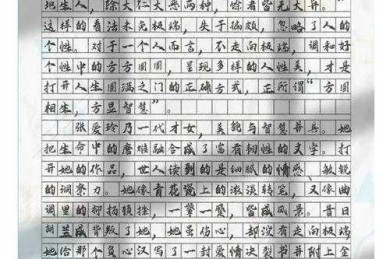 地生人，除大仁大恶两种，馀者皆无大异。”
这样的看法未免极端，失于偏颇，忽略了人的
个性。对于一个人而言，不走向极端，调和好
个性中的方方圆圆，呈现多样的人性美，才是
打开人生圆满之门的正确方式，正所谓“方圆
相生，方显智慧”。
张爱玲乃一代才女，美能与智慧并具。她
把生命中的磨难融合成了富有韧性的文字。打
开她的作品，世人读到的是细腻的情感、敏锐
的洞察力。她像青花瓷上的浓淡转笔，又像曲
调里的抑扬顿挫，一颦一蹙，皆成风景。昔日
胡兰成背叛了她，她虽伤心，却没有走向极端
她给那个负心汉写了一封爱情决裂书并附上金